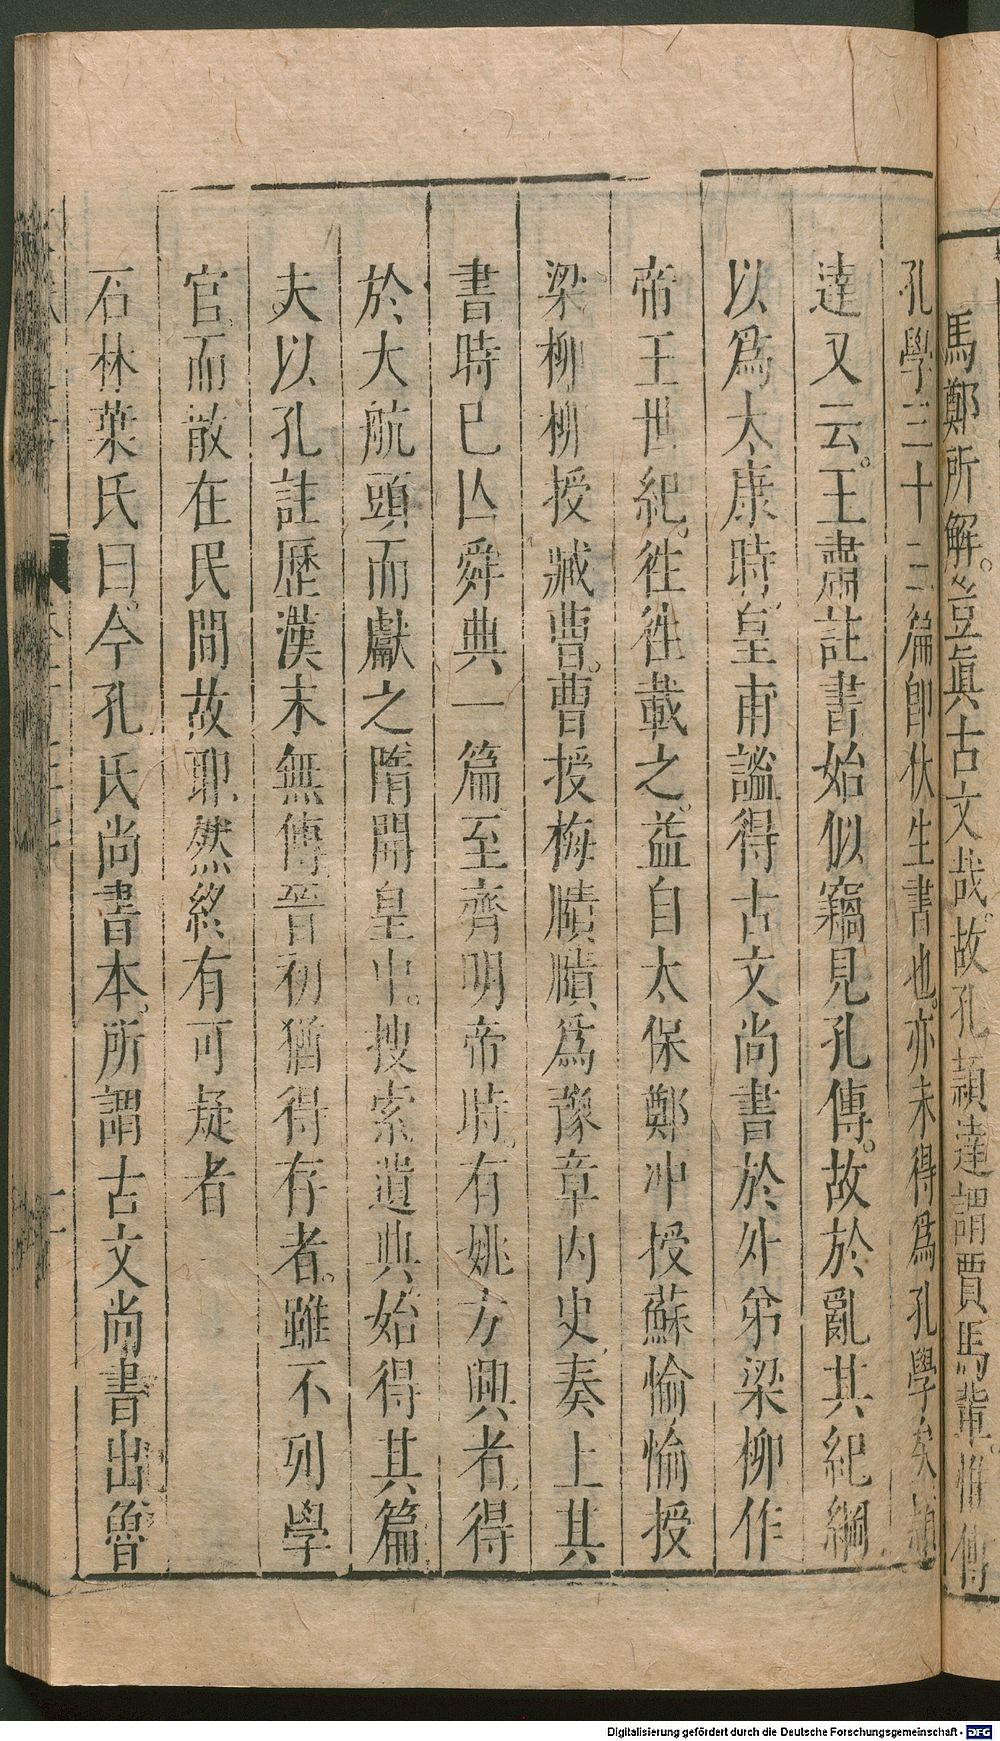 馬鄭所解。豈眞古文哉。故孔頴達謂賈馬輩。惟傳
孔學三十三篇卽伏生書也。亦未得爲孔學矣頴
達又云。王肅註書始似竊見孔傳。故於亂其紀綱
以爲太康時皇甫謐得古文尚書於外弟梁柳作
帝王世紀。徃徃載之。益自太保鄭冲授蘇愉愉授
梁柳柳授臧曹。曹授梅賾賾爲豫章内史奏上其
書時巳亾舜典一篇至齊明帝時有姚方興者得
於大航頭而獻之隋開皇中。搜索遺典始得其篇
夫以孔註歷漢末無傳晉初猶得存者。雖不列學
官而散在民間故耶然終有可疑者
石林葉氏曰。今孔氏尚書本。所謂古文尚書出魯
Digitalisierung gefördert durch die Deutsche Forschungsgemeinschaft - DFG